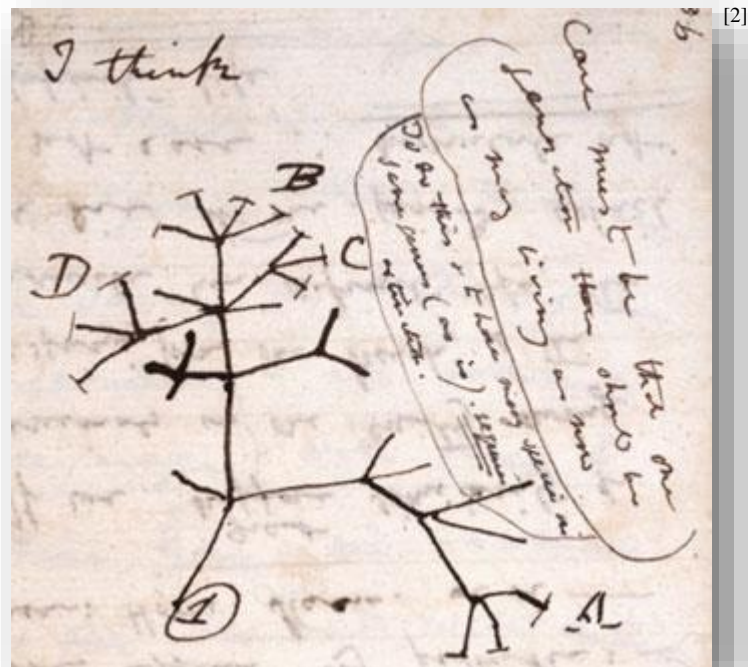 [2]
36
I think
Case must be that one
generation then should be
as many living as now
To do this & to have many species in
same genus (as is). requires
extinction.
B
C
D
A
1